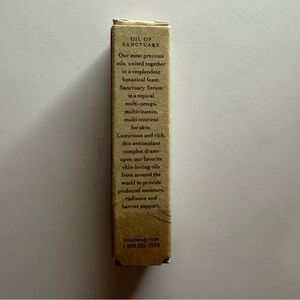 OIL OF
SANCTUARY
Our most precious
oils, united together
in a resplendent
botanical feast.
Sanctuary Serum
is a topical
multi-omega,
multivitamin,
multi-nutrient
for skin.
Luxurious and rich,
this antioxidant
complex draws
upon our favorite
skin-loving oils
from around the
world to provide
profound moisture,
radiance and
barrier support.
evanhealy.com
1 888